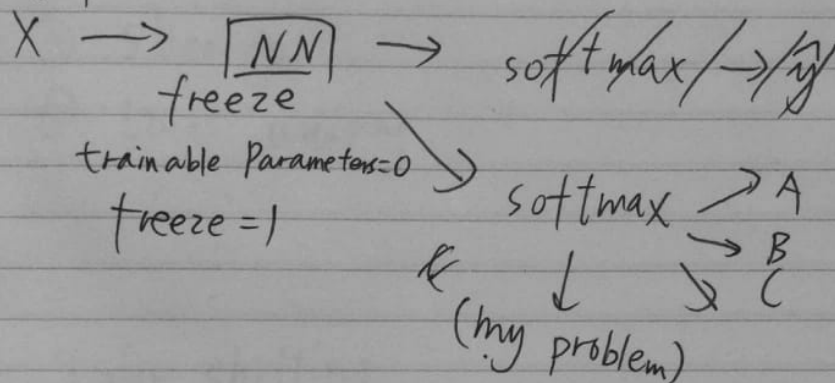 X → NN → softmax → ŷ
freeze
trainable Parameters=0
freeze=1
softmax → A
→ B
↓ → C
(my problem)